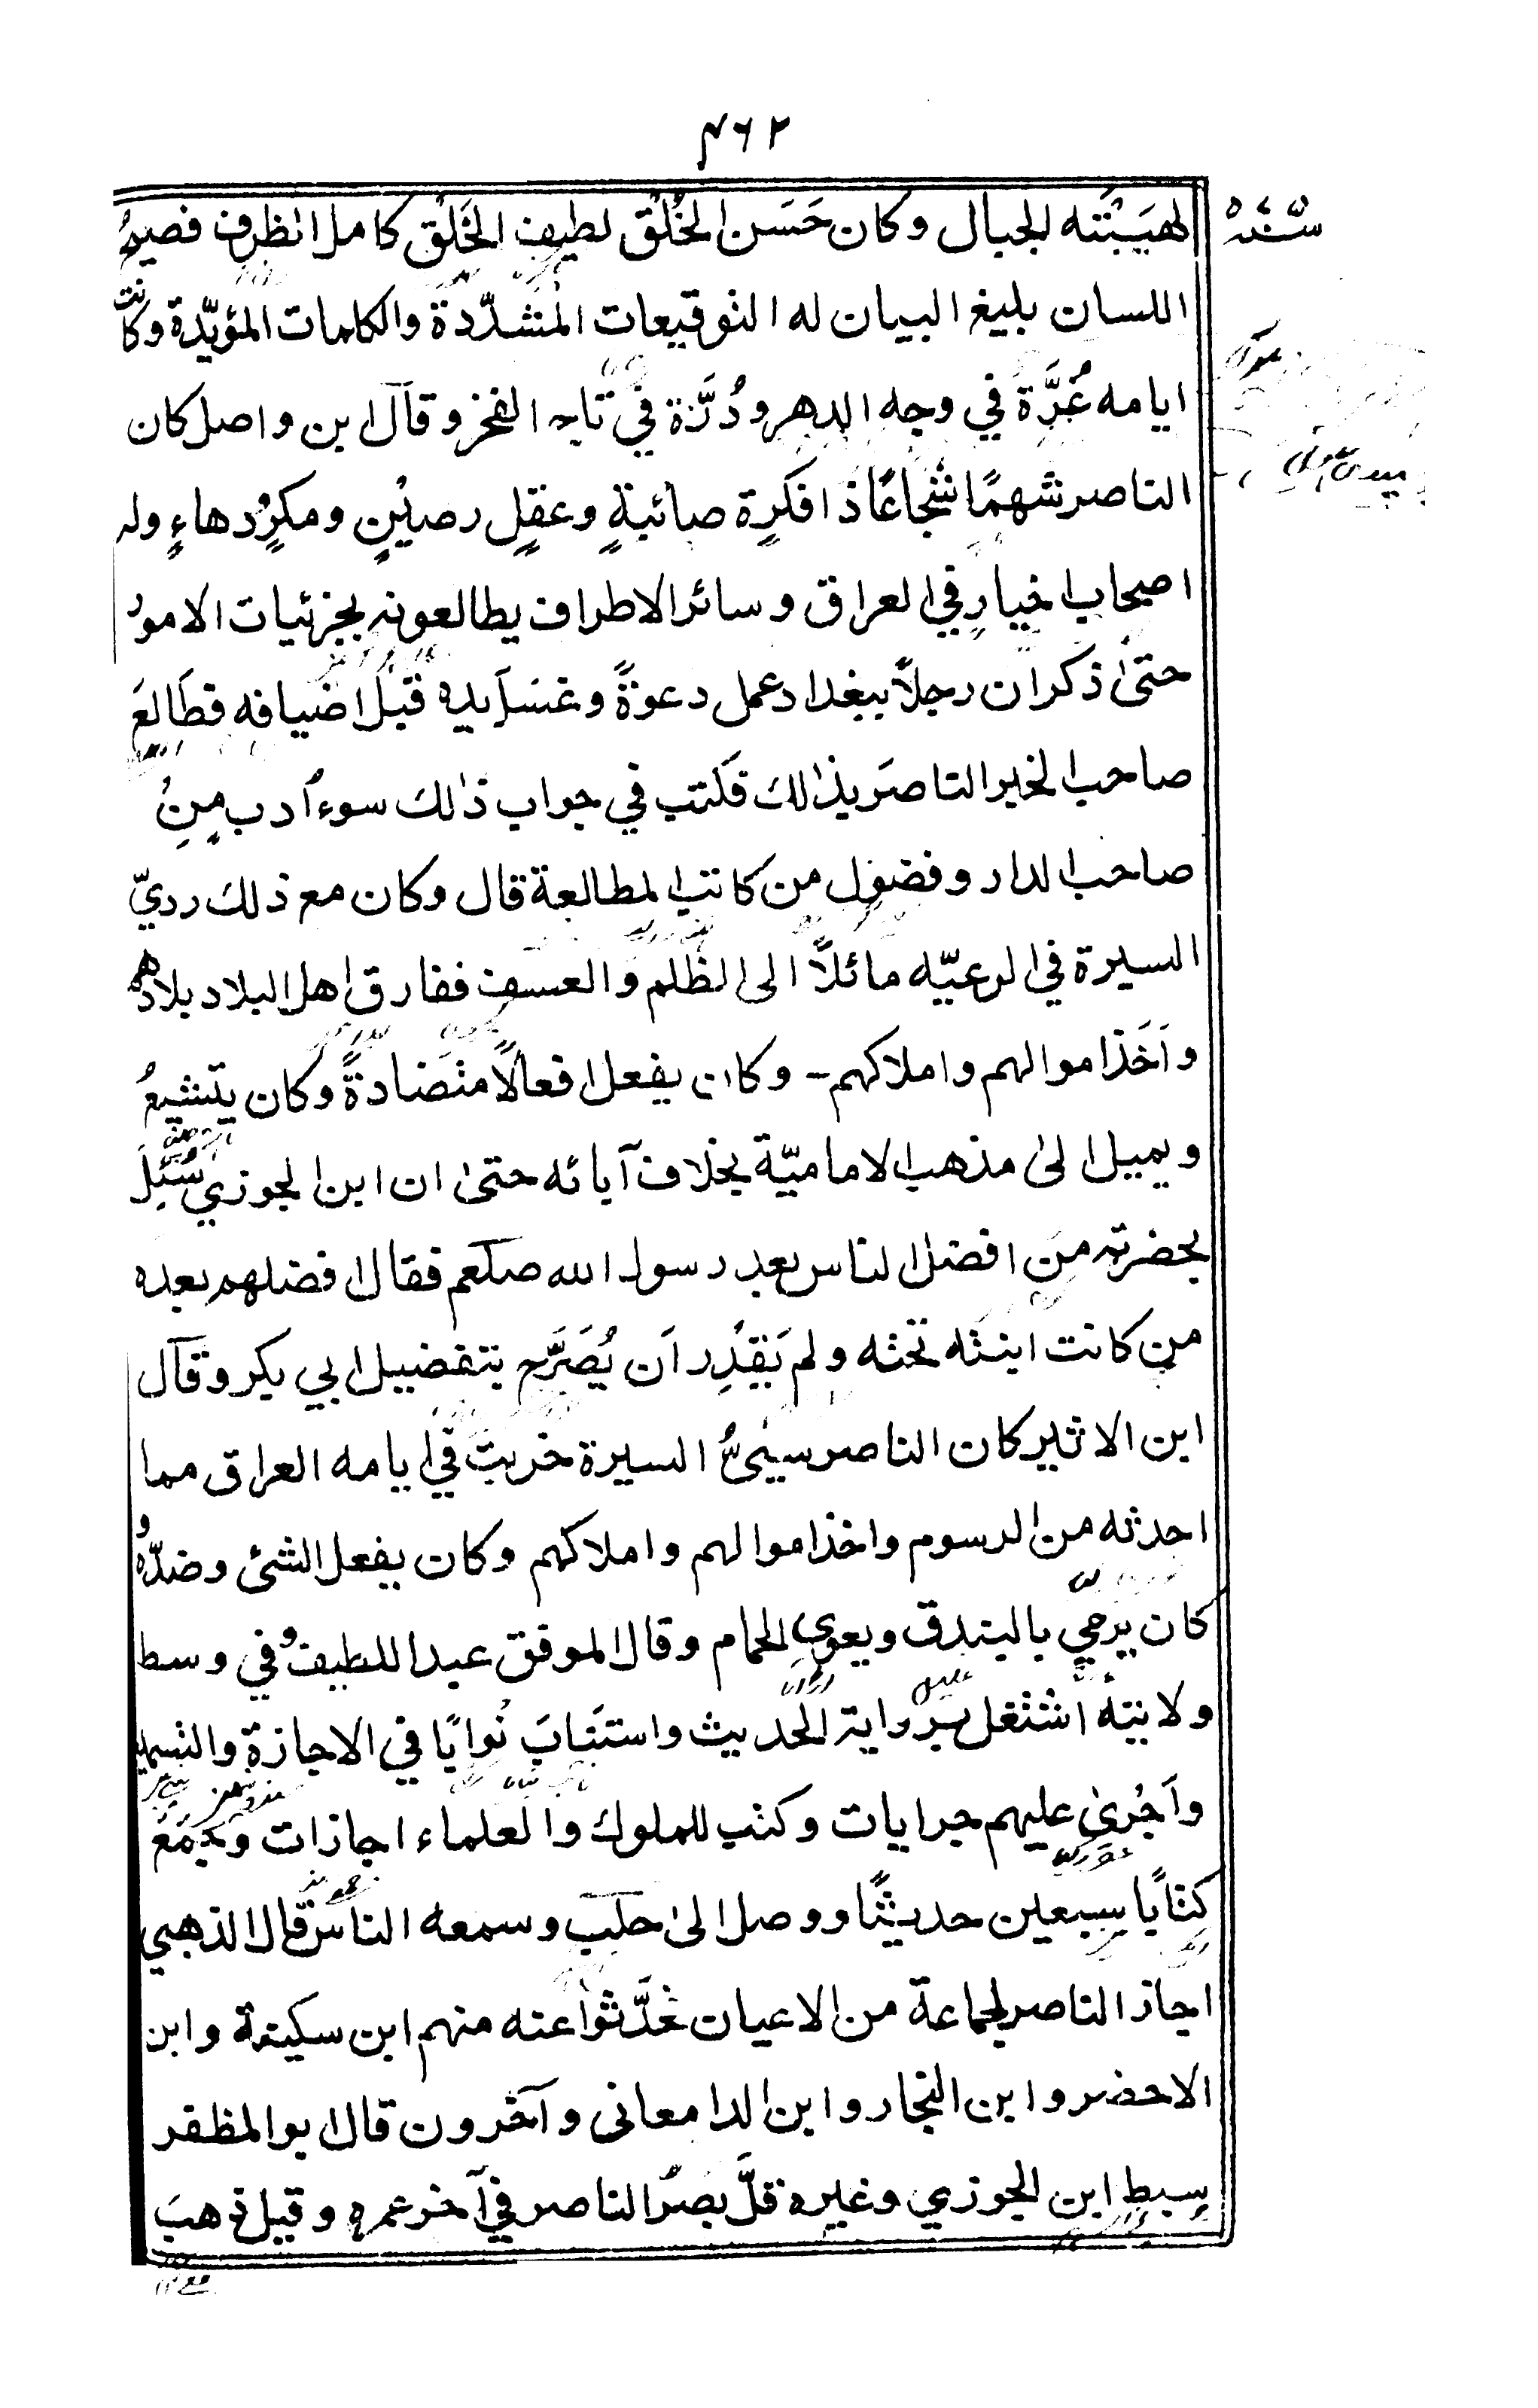 ۴۶۲
لهَيبَتَه الجبال وكان حَسَن الخُلُق لطيف الخَلْق كامل الظرف فصيح
اللسان بليغ البيان له التوقيعات المشدّدة والكلمات المؤيّدة وكانت
ايامه غُرَّة في وجه الدهر ودُرَّة في تاج الفخر وقال ابن واصل كان
الناصر شهمًا شجاعًا ذا فكرة صائبةٍ وعقلٍ رصينٍ ومكرٍ ودهاءٍ وله
اصحاب اخبار في العراق وسائر الاطراف يطالعونه بجزئيات الامور
حتىٰ ذكر ان رجلاً ببغداد عمل دعوةً وغسل يده قبل اضيافه فطالعَ
صاحب الخبر الناصرَ بذالك فكتب في جواب ذالك سوء ادب مِن
صاحب الدار وفضول من كاتب المطالعة قال وكان مع ذلك رديّ
السيرة في الرعيّه مائلاً الى الظلم والعسف ففارق اهل البلاد بلادهم
واَخَذ اموالهم واملاكهم - وكان يفعل افعالاً متضادةً وكان يتشيعُ
ويميل الىٰ مذهب الاماميّة بخلاف آبائه حتىٰ ان ابن الجوزي سُئِلَ
بحضرته مَن افضل الناس بعد رسول الله صلعم فقال افضلهم بعده
من كانت ابنته تحته ولم يَقدِر اَن يُصَرَّح بتفضيل ابي بكر وقال
ابن الاثير كان الناصر سيئُ السيرة خربت في ايامه العراق مما
احدثه من الرسوم واخذ اموالهم واملاكهم وكان يفعل الشئ وضدّهُ و
كان يرمي بالبندق ويغوي الحمام وقال الموفق عبد اللطيف وفي وسط
ولايته اشتغل برواية الحديث واستنابَ نُوابًا في الاجازة والتسميع
واَجْرىٰ عليهم جرايات وكتب للملوك والعلماء اجازات وجمَعَ
كتابًا سبعين حديثًا ووصل الىٰ حلب وسمعه الناس قال الذهبي
اجاز الناصر لجماعة من الاعيان فحدَّثوا عنه منهم ابن سكينة وابن
الاخضر وابن النجار وابن الدامغانى وآخرون قال ابو المظفر
سبط ابن الجوزي وغيره قلَّ بصرُ الناصر في آخر عمره وقيل ذهبَ